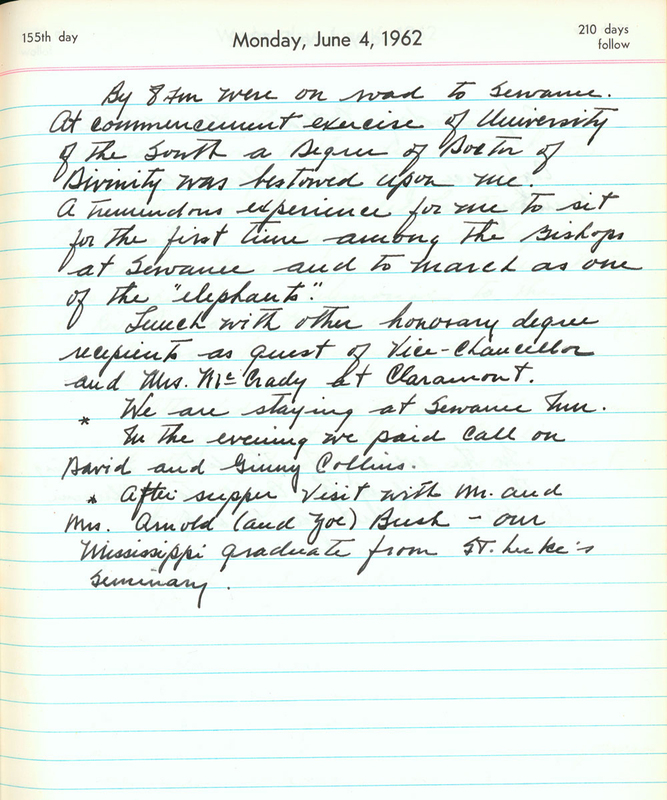 155th day
Monday, June 4, 1962
210 days
follow
By 8 Am were on road to Sewanee.
At commencement exercise of University
of the South a Degree of Doctor of
Divinity was bestowed upon me.
A tremendous experience for me to sit
for the first time among the Bishops
at Sewanee and to march as one
of the "elephants".
Lunch with other honorary degree
recipients as guest of Vice-Chancellor
and Mrs. McCrady at Claramont.
* We are staying at Sewanee Inn.
In the evening we paid call on
David and Ginny Collins.
* After supper visit with Mr. and
Mrs. Arnold (and Zoe) Bush - our
Mississippi graduate from St. Luke's
Seminary.